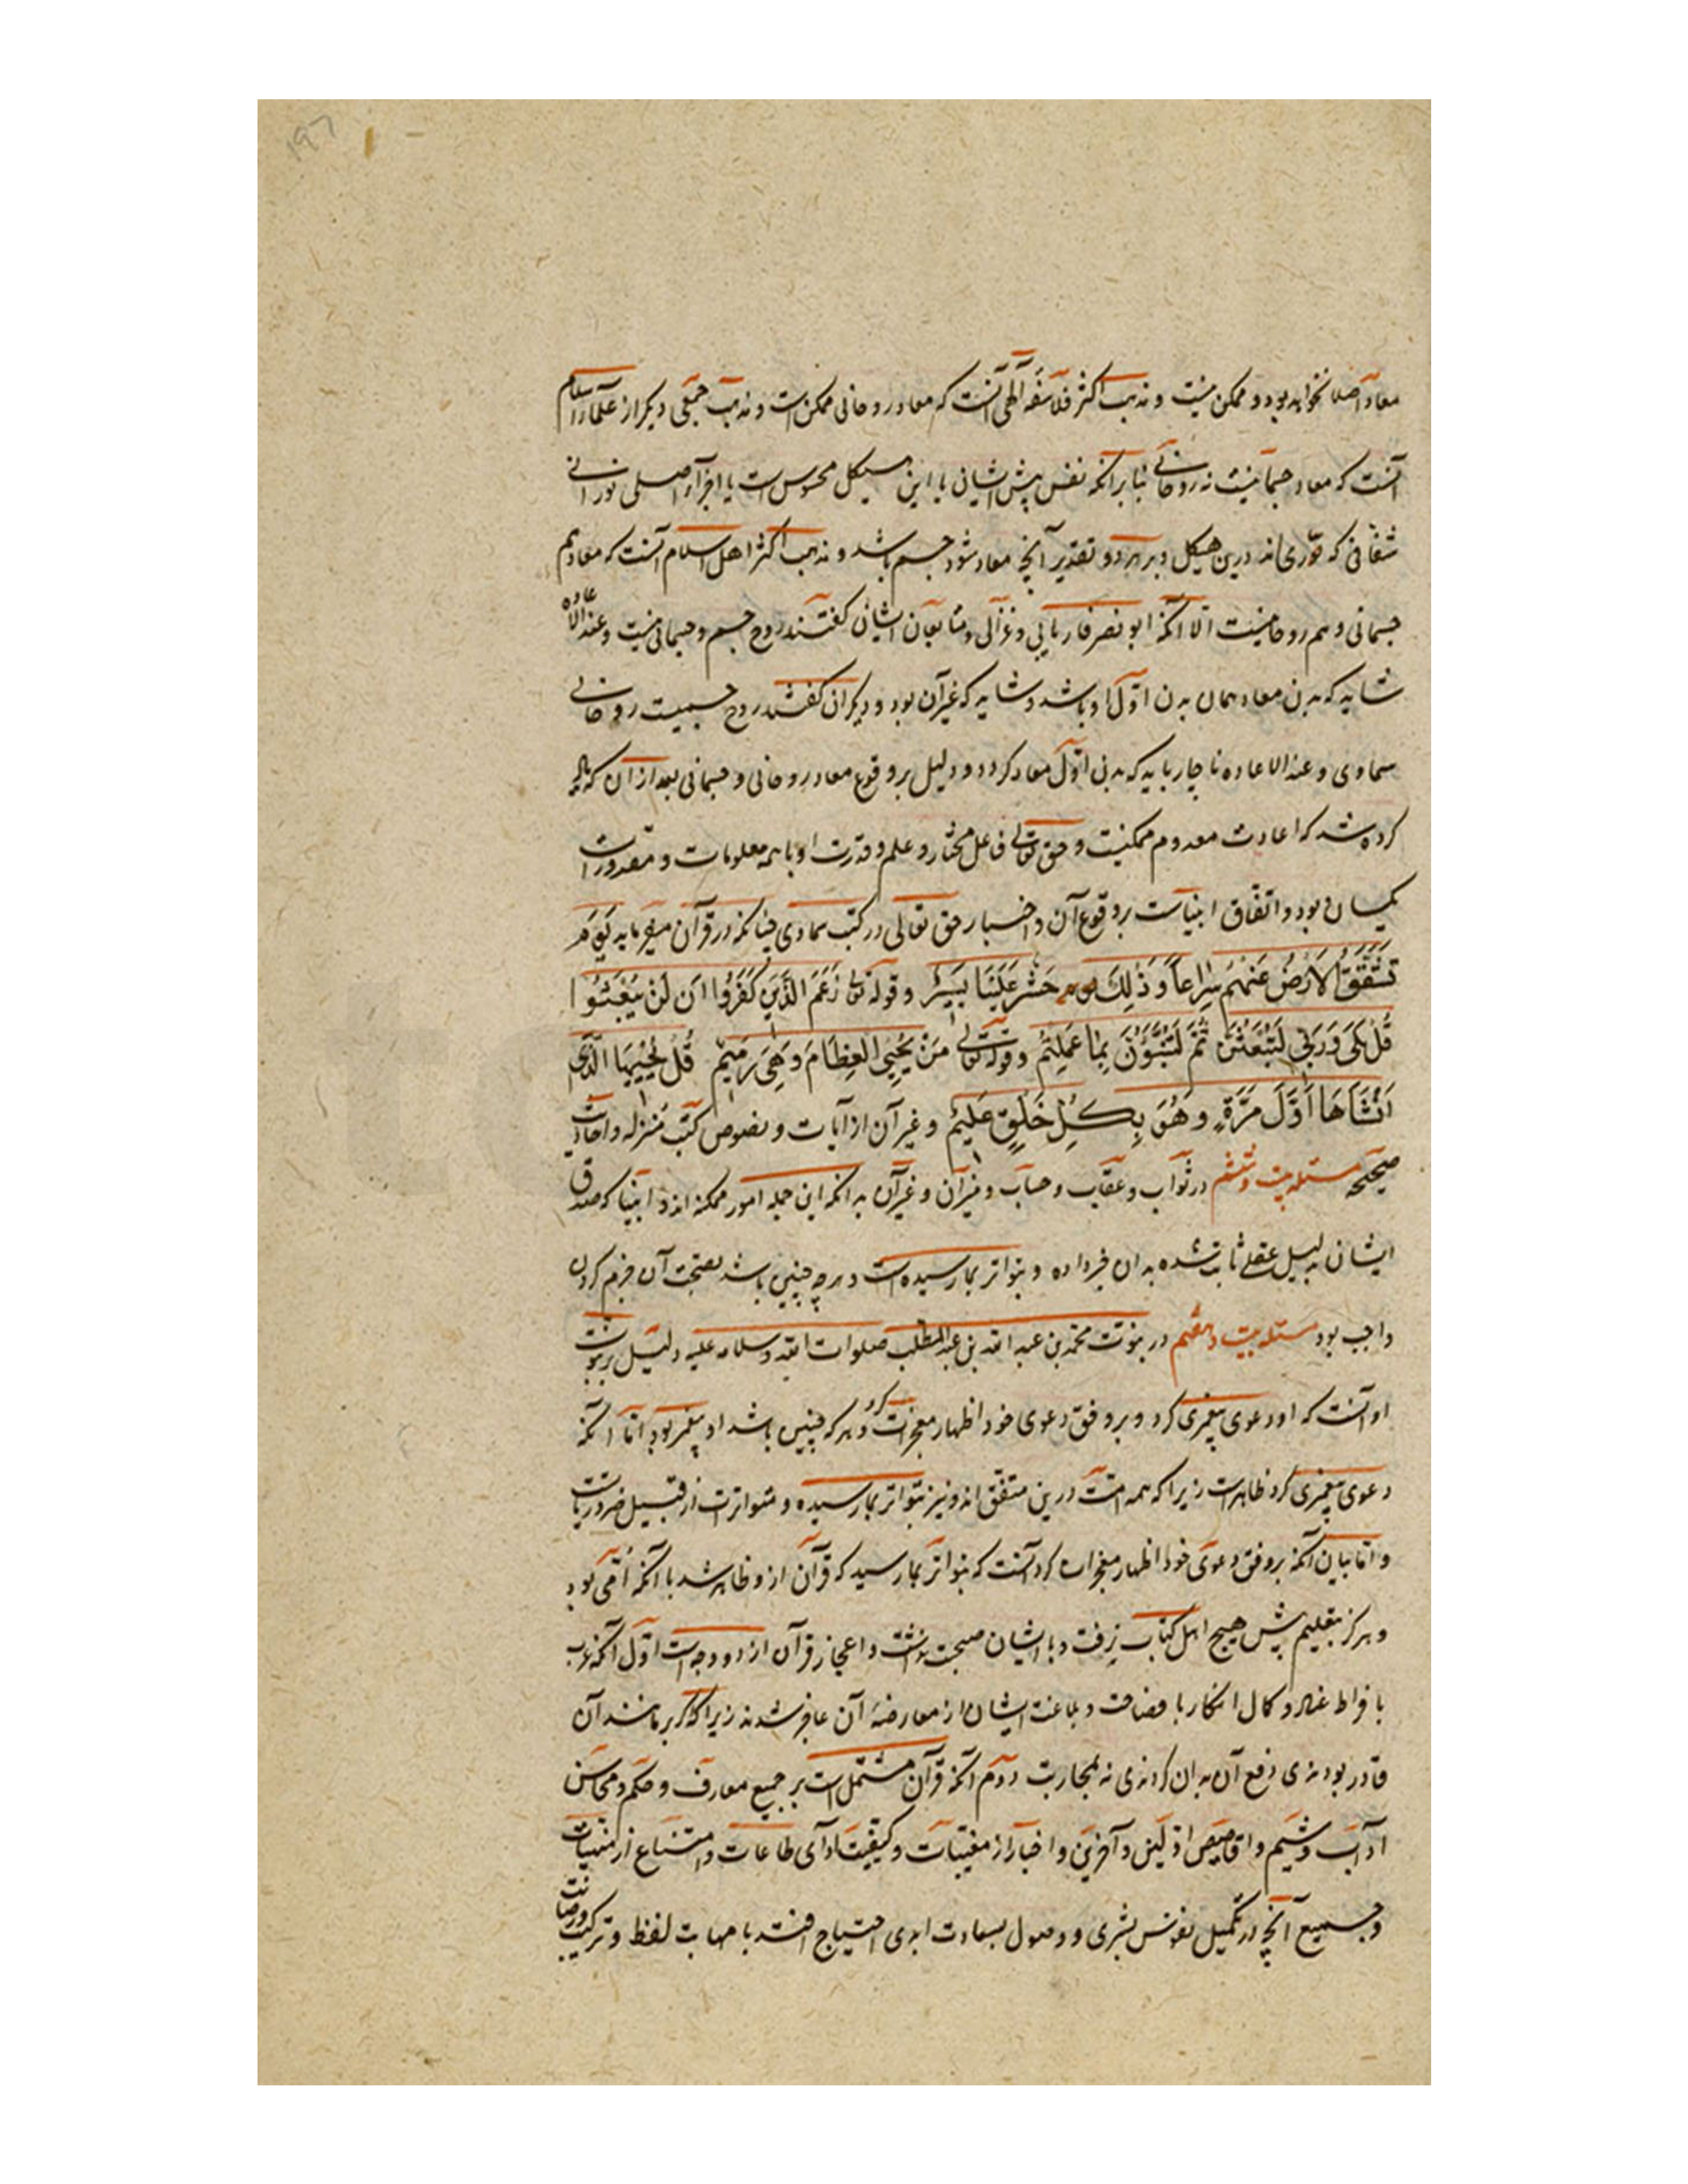 ۱۹۷
معاد اصلا نخواهد بود و ممکن نیست و مذهب اکثر فلاسفه الهی آنست که معاد روحانی ممکن است و مذهب جمعی دیگر از علماء اسلام
آنست که معاد جسمانیست نه روحانی بنابر آنکه نفس پیش ایشان یا این هیکل محسوس است یا اجزاء اصلی نورانی
شفافی که متواری‌اند درین هیکل و بر هر دو تقدیر آنچه معاد شود جسم باشد و مذهب اکثر اهل اسلام آنست که معاد هم
جسمانی و هم روحانیست الا آنکه ابو نصر فاریابی و غزالی و متابعان ایشان گفتند روح جسم و جسمانی نیست و عند الاعاده
شاید که بدن معاد همان بدن اول او باشد و شاید که غیر آن بود و دیگران گفتند روح جسمیست روحانی
سماوی و عند الاعاده ناچار باید که بدن اول معاد گردد و دلیل بر وقوع معاد روحانی و جسمانی بعد از آن که
کرده شد که اعادت معدوم ممکنست و حق تعالی فاعل مختار و علم و قدرت او با همه معلومات و مقدورات
یکسان بود و اتفاق انبیاست بر وقوع آن و اخبار حق تعالی در کتب سماوی چنانکه در قرآن میفرماید یَوْمَ
تَشَقَّقُ الْاَرْضُ عَنْهُمْ سِرَاعاً وَ ذٰلِکَ حَشْرٌ عَلَیْنَا یَسِیْرٌ و قوله تعالی زَعَمَ الَّذِیْنَ کَفَرُوا اَن لَنْ یُبْعَثُوا
قُلْ بَلَی وَ رَبِّی لَتُبْعَثُنَّ ثُمَّ لَتُنَبَّؤُنَّ بِمَا عَمِلْتُمْ و قوله تعالی مَنْ یُحْیِی الْعِظَامَ وَ هِیَ رَمِیْمٌ قُلْ یُحْیِیْهَا الَّذِی
اَنْشَاَهَا اَوَّلَ مَرَّةٍ وَ هُوَ بِکُلِّ خَلْقٍ عَلِیْمٌ و غیر آن از آیات و نصوص کتب منزله و احادیث
صحیحه مسئله بیست و ششم در ثواب و عقاب و حساب و میزان و غیرآن بدانکه این جمله امور ممکنه اند و انبیا که صدق
ایشان بدلیل عقلی ثابت شده بدان خبر داده و بتواتر بما رسیده است و هرچه چنین باشد بصحت آن جزم کردن
واجب بود مسئله بیست و هفتم در نبوت محمد بن عبد الله بن عبد المطلب صلوات الله و سلامه علیه دلیل بر نبوت
او آنست که او دعوی پیغمبری کرد و بر وفق دعوی خود اظهار معجزات کرد و هر که چنین باشد او پیغمبر بود اما آنکه
دعوی پیغمبری کرد ظاهر است زیرا که همه امت درین متفق اند و نیز بتواتر بما رسیده و متواترات از قبیل ضروریات
و اما بیان آنکه بر وفق دعوی خود اظهار معجزات کرد آنست که بتواتر بما رسید که قرآن ازو ظاهر شد با آنکه اُمّی بود
و هرگز بتعلیم پیش هیچ اهل کتاب نرفت و با ایشان صحبت نداشت و اعجاز قرآن از دو وجه است اول آنکه عرب
با فراط عناد و کمال انکار با فصاحت و بلاغت ایشان از معارضه آن عاجز شدند زیرا که اگر بر مانند آن
قادر بودندی دفع آن بدان کردندی نه بمحاربت دوم آنکه قرآن مشتمل است بر جمیع معارف و حکم و محاسن
آداب و شیم و اقاصیص اولین و آخرین و اخبار از مغیبات و کیفیت ادای طاعات و امتناع از منهیات
و جمیع آنچه در تکمیل نفوس بشری و وصول بسعادت ابدی احتیاج افتد با مهابت لفظ و ترکیب و رصانت